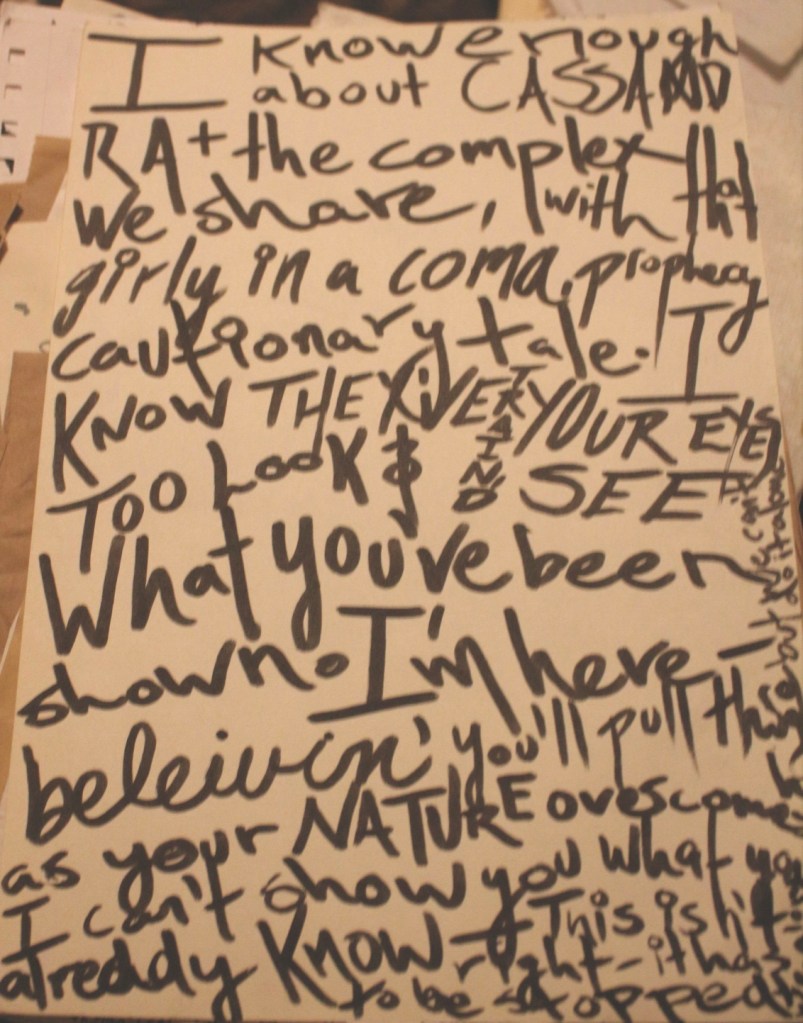 I Know enough
about CASSAND
RA + the complex that
we share, with that
girly in a coma, prophecy
cautionary tale. I
KNOW THE RIVER YOUR EYES
TRAIND
TOO LOOK & SEE
What you've been
shown. I'm here
beleivin' you'll pull thr
as your NATURE overcomes
I can't show you what yo
already Know - This isn't
right - it ha
to be stopped
but we can't
do it alone